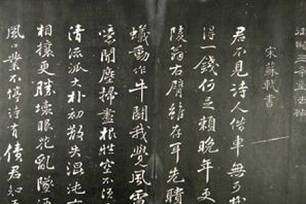 宋蘇軾書
君不見詩人借車無可
得一錢何足賴晚年更
陵翁右臂雖存耳先聵
蟻動作牛鬥我覺風雷
噫聞塵掃盡根性空不
清流派大朴初散失混沌
相攘更勝壞眼花亂墜酒
風口業不停詩有債君知